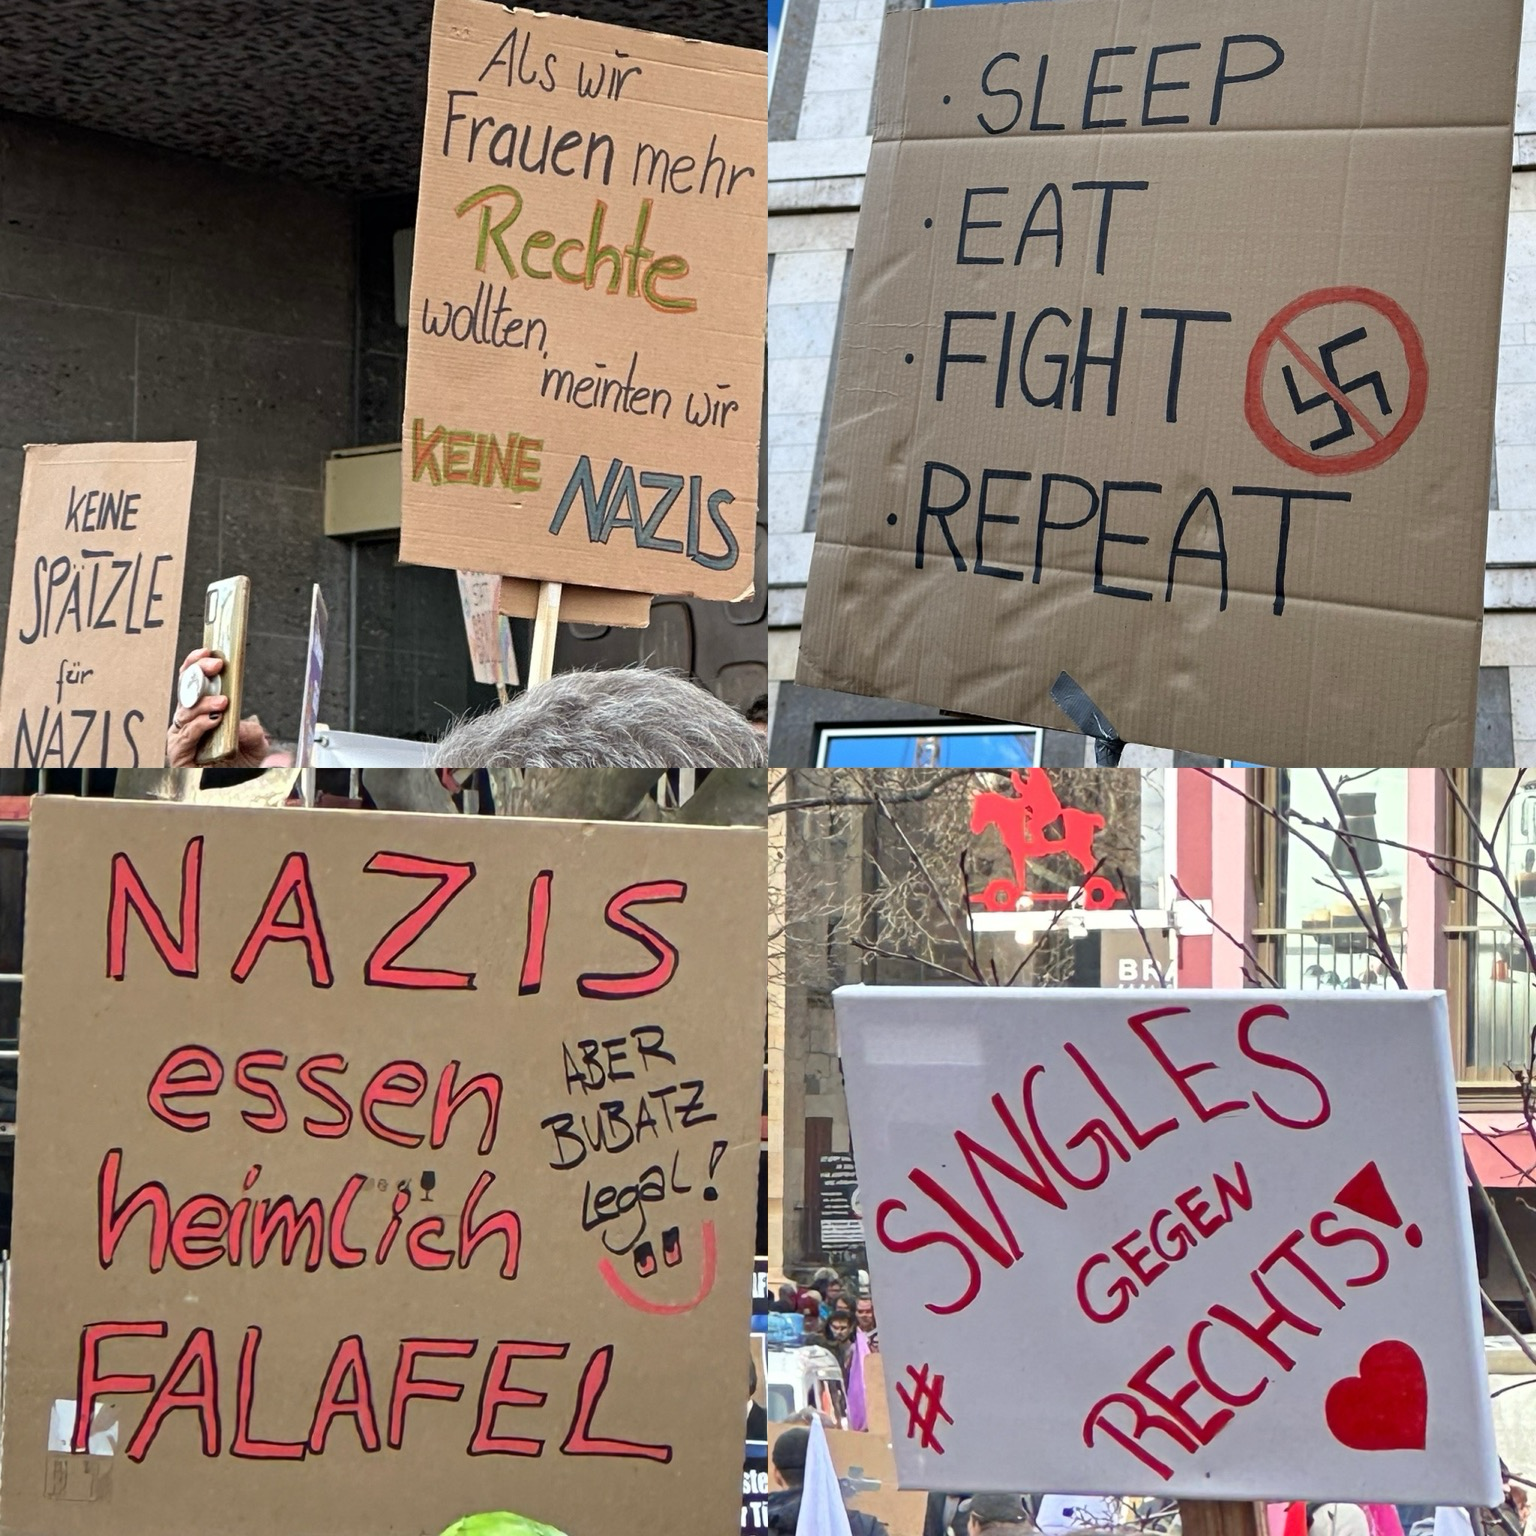 Als wir
Frauen mehr
Rechte
wollten,
meinten wir
KEINE
NAZIS
KEINE
SPÄTZLE
für
NAZIS
· SLEEP
· EAT
· FIGHT
· REPEAT
NAZIS
essen
heimlich
FALAFEL
ABER
BUBATZ
legal!
SINGLES
GEGEN
RECHTS!
#